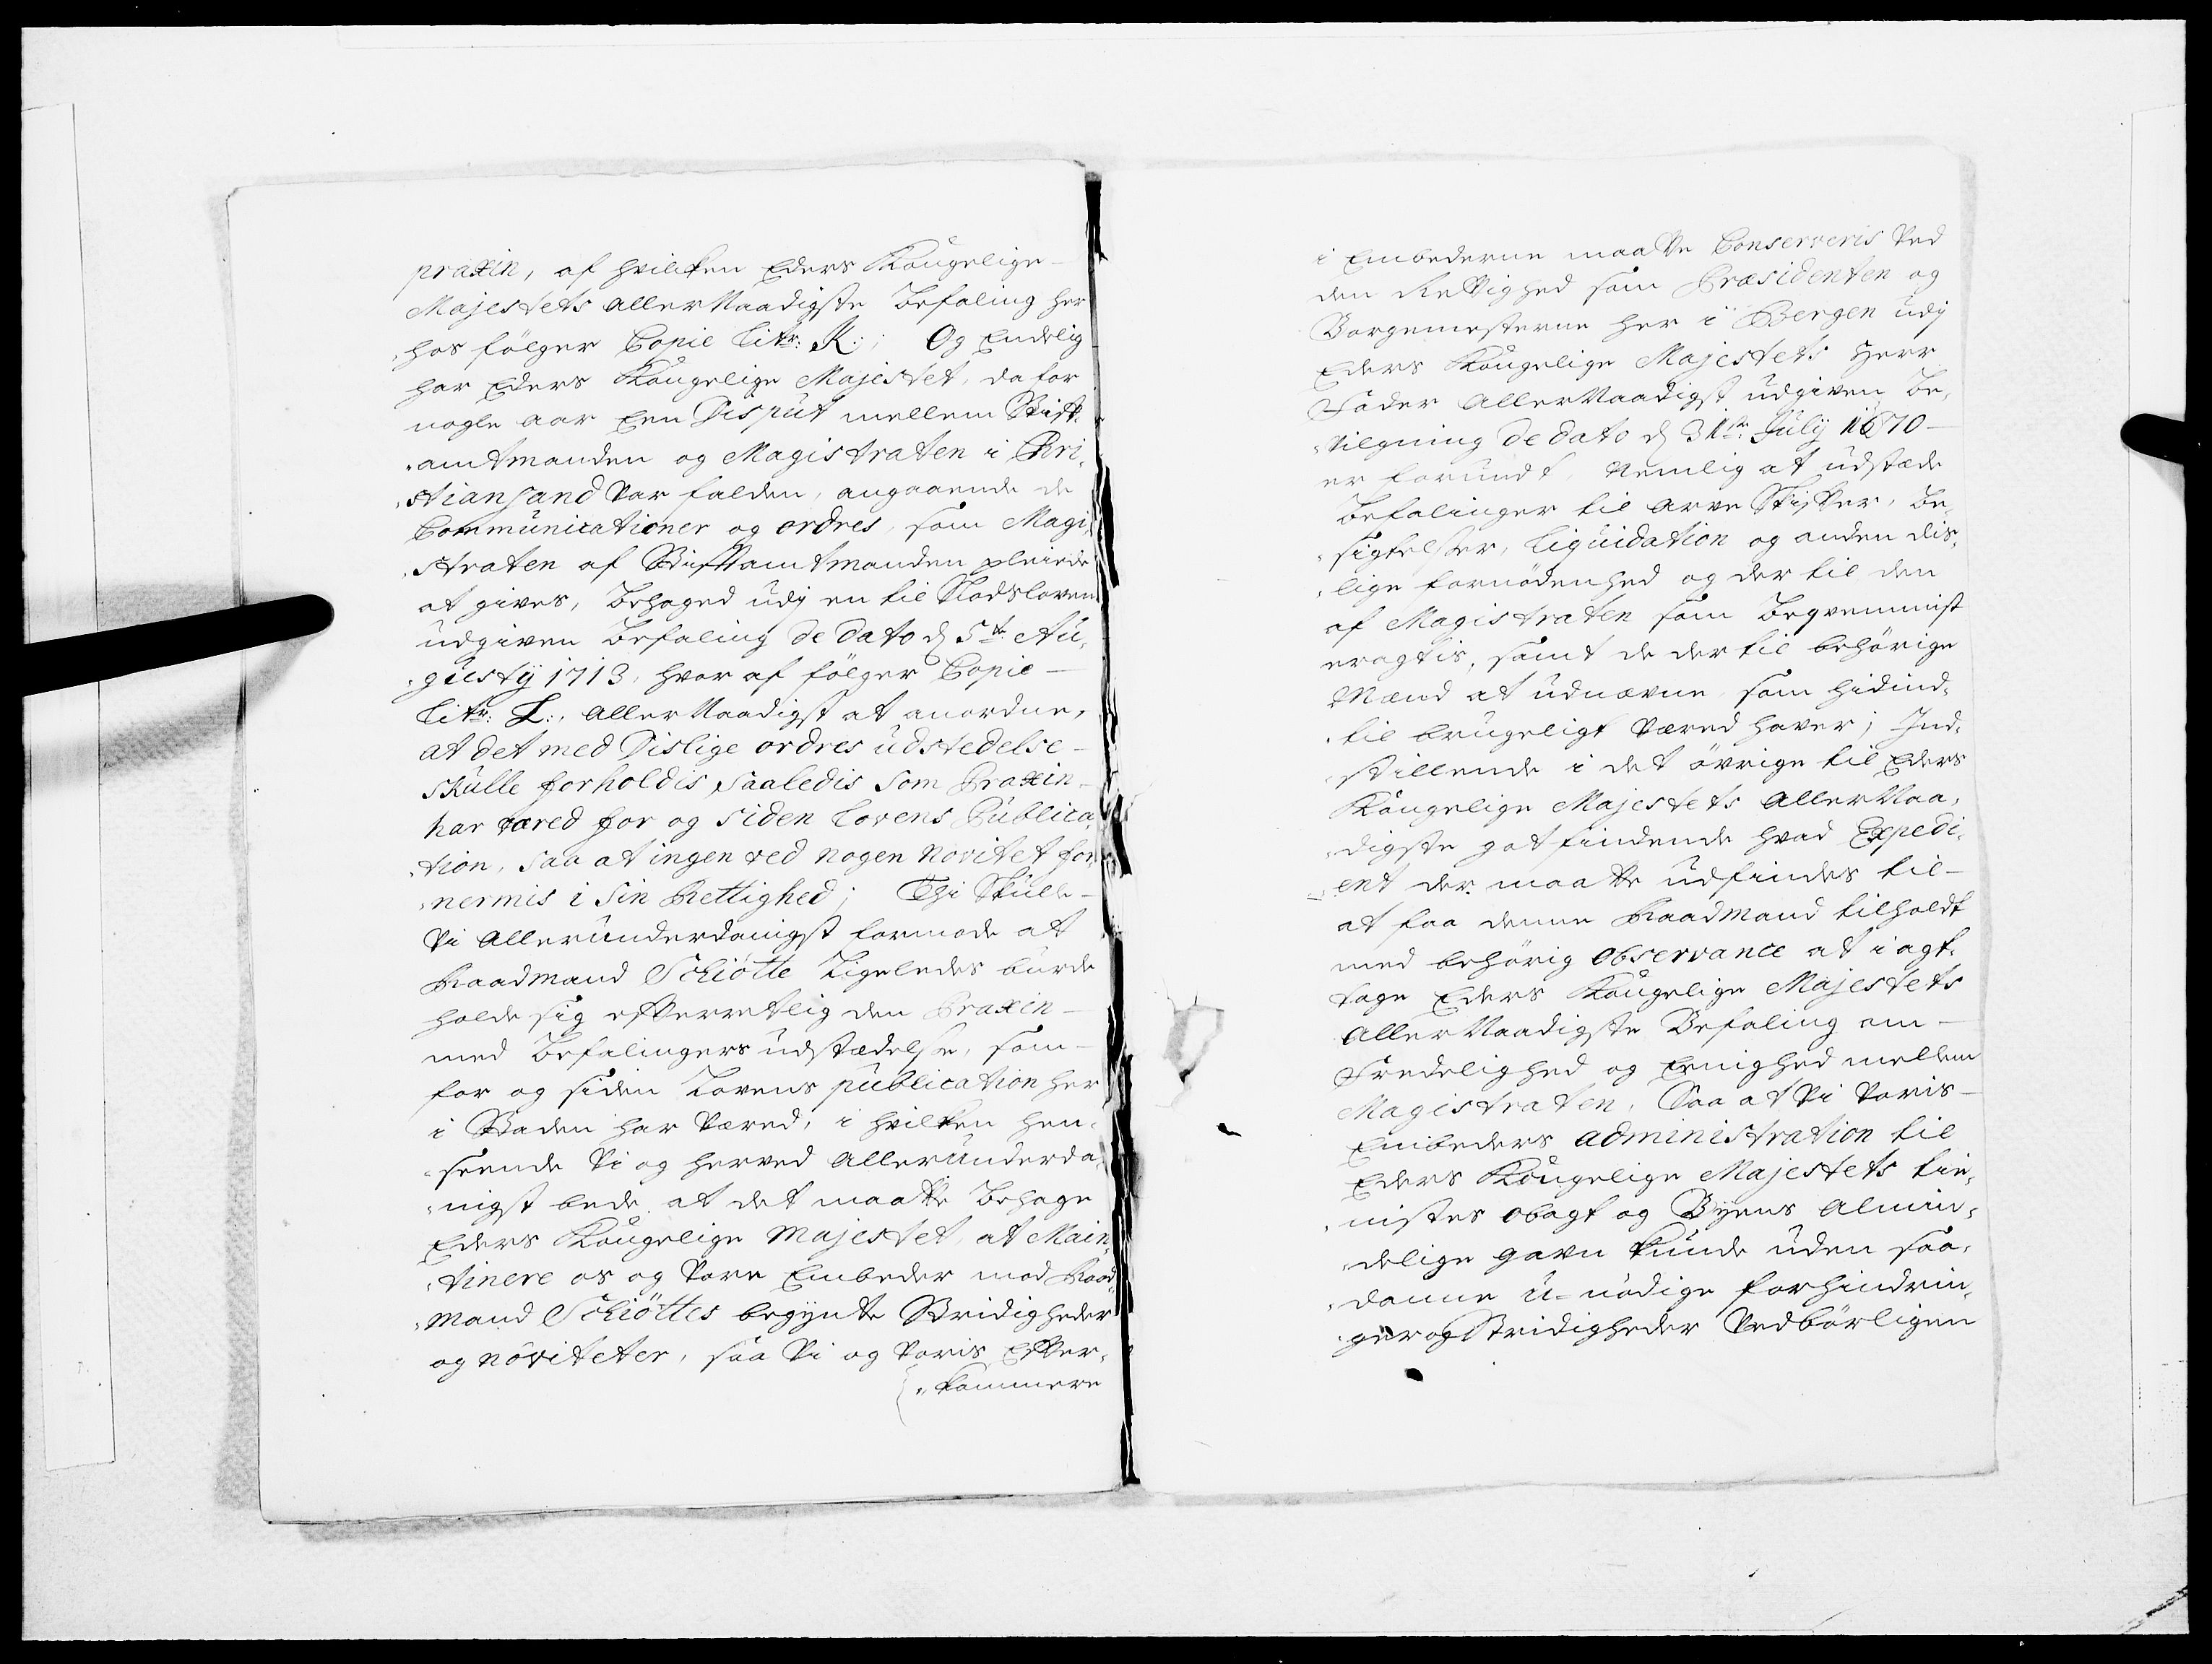 praxin, af hvilken Eders Kongelige
Majestets Allernaadigste Befaling her
hos fölger Copie Litr: K:; Og Endelig
har Eders Kongelige Majestet, da for
nogle aar Een Disput mellem Stift-
amtmanden og Magistraten i Chri-
stiansand var falden, angaaende de
Communicationer og ordres, som Magi-
straten af Stiftamtmanden pleiede
at gives, Behaged udj en til Slodsloven
udgiven Befaling de dato d 5te Au-
gusty 1713, hvor af fölger Copie
Litr: L:, Allernaadigst at anordne,
at det med Dislige ordres udstedelse
skulle forholdis saaledis som Praxin
har væred for og siden Lovens Publica-
tion, saa at ingen ved nogen Novitet for-
nermis i sin Rettighed; Thi skulle
Vi Allerunderdanigst formode at
Raadmand Schiötte Ligeledes burde
holde sig efterretlig den Praxin
med Befalingers udstædelse, som
for og siden Lovens publication her
i Staden har Væred, i hvilken hen-
seende Vi og herved Allerunderda-
nigst bede at det maatte Behage
Eders Kongelige Majestet, at Main-
tinere os og Vore Embeder mod Raad-
mand Schiöttes begyndte Stridigheder
og noviteter, saa Vi og Voris Efter-
kommere
i Embederne maatte Conserveris Ved
den Rettighed som Præsidenten og
Borgemesterne her i Bergen udj
Eders Kongelige Majestets Herr
Fader Allernaadigst udgiven Be-
vilgning de dato d 31te July 1670
er forundt, Nemlig at udstæde
Befalinger til Arve Skifter, Be-
sigtelser, Liquidation og anden dis-
lige fornödenhed og der til den
af Magistraten som Beqvemmist
eragtis, samt de der til behörige
Mænd at udnævne som hidind-
til brugeligt Væred haver; Ind-
stillende i det övrige til Eders
Kongelige Majestets Allernaa-
digste got findende hvad Expedi-
ent der maatte udfindes til
at faa denne Raadmand tilholdt
med behörig observance at i agt-
tage Eders Kongelige Majestets
Allernaadigste Befaling om
Fredelighed og Eenighed mellem
Magistraten, Saa at Vi Voris
Embeders administration til
Eders Kongelige Majestets tie-
nistes obagt og Byens Almin-
delige gavn kunde uden saa-
danne u-nödige forhindrin-
ger og Stridigheder Vedbörligen